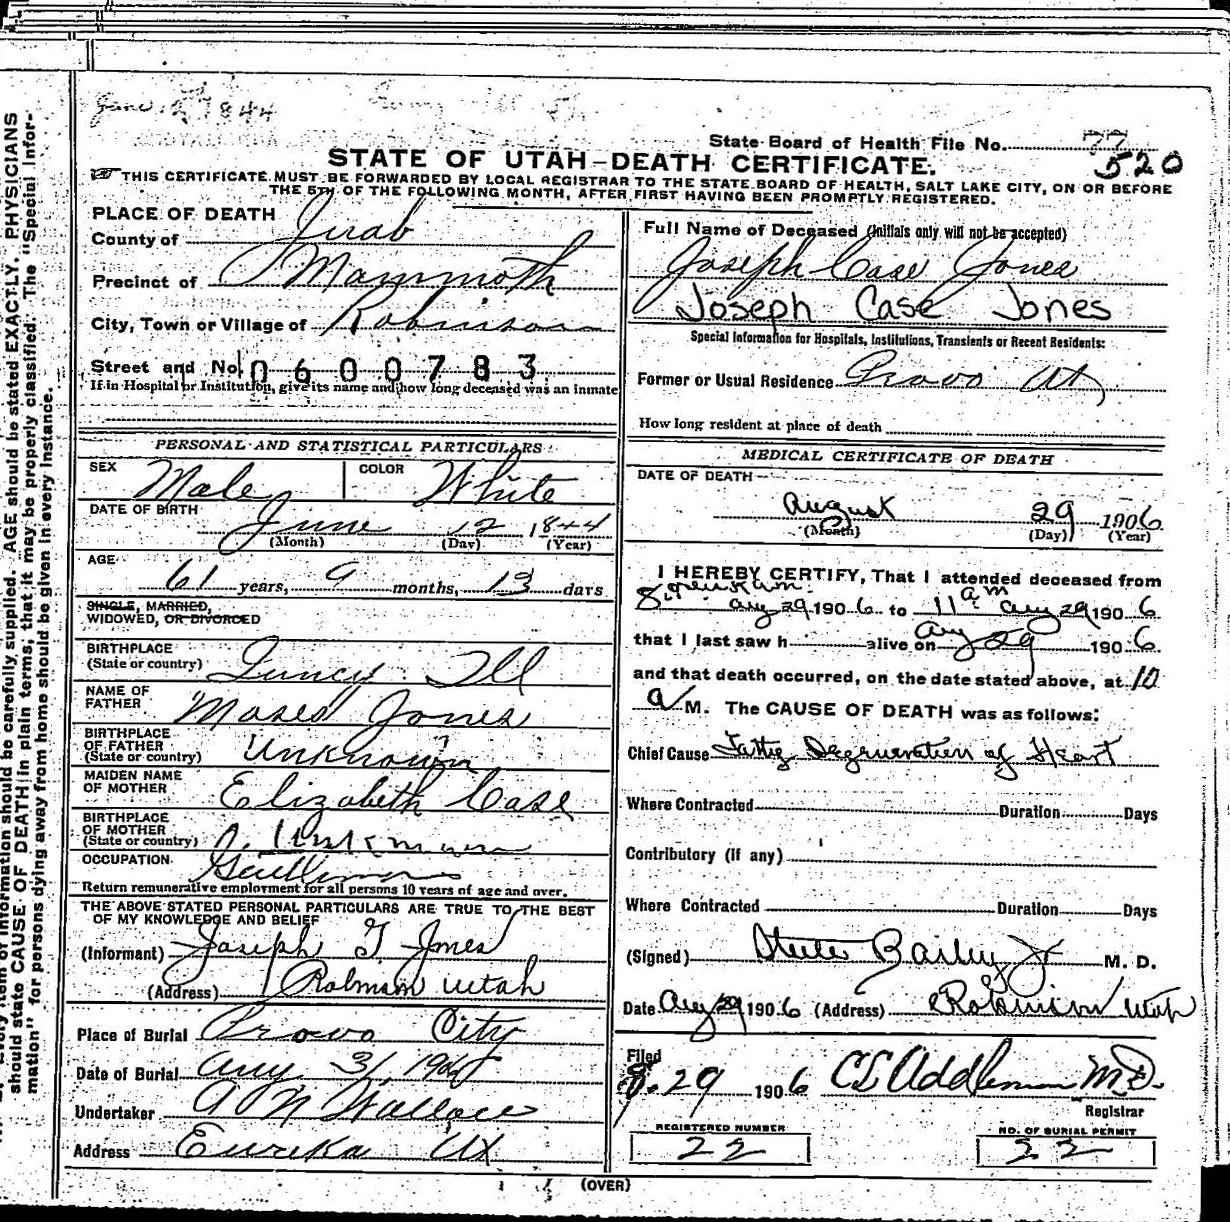 June 12 1844
State Board of Health File No. 77
520
STATE OF UTAH-DEATH CERTIFICATE.
THIS CERTIFICATE MUST BE FORWARDED BY LOCAL REGISTRAR TO THE STATE BOARD OF HEALTH, SALT LAKE CITY, ON OR BEFORE
THE 5TH OF THE FOLLOWING MONTH, AFTER FIRST HAVING BEEN PROMPTLY REGISTERED.
PLACE OF DEATH
County of Juab
Precinct of Mammoth
City, Town or Village of Robinson
Street and No. 0600783
If in Hospital or Institution, give its name and how long deceased was an inmate
PERSONAL AND STATISTICAL PARTICULARS
SEX Male COLOR White
DATE OF BIRTH
June 12 1844
(Month) (Day) (Year)
AGE
61 years, 9 months, 13 days
SINGLE, MARRIED,
WIDOWED, OR DIVORCED
BIRTHPLACE
(State or country) Quncy Ill
NAME OF
FATHER Moses Jones
BIRTHPLACE
OF FATHER
(State or country) Unknown
MAIDEN NAME
OF MOTHER Elizabeth Case
BIRTHPLACE
OF MOTHER
(State or country) Unknown
OCCUPATION Gentleman
Return remunerative employment for all persons 10 years of age and over.
THE ABOVE STATED PERSONAL PARTICULARS ARE TRUE TO THE BEST
OF MY KNOWLEDGE AND BELIEF
(Informant) Joseph T. Jones
(Address) Robinson Utah
Place of Burial Provo City
Date of Burial Aug 31 1906
Undertaker A N Wallace
Address Eureka Ut
Full Name of Deceased (Initials only will not be accepted)
Joseph Case Jones
Joseph Case Jones
Special Information for Hospitals, Institutions, Transients or Recent Residents:
Former or Usual Residence Provo Ut
How long resident at place of death
MEDICAL CERTIFICATE OF DEATH
DATE OF DEATH
August 29 1906
(Month) (Day) (Year)
I HEREBY CERTIFY, That I attended deceased from
8 Aug 29 1906 to 11 am Aug 29 1906
that I last saw h alive on Aug 29 1906
and that death occurred, on the date stated above, at 10
a M. The CAUSE OF DEATH was as follows:
Chief Cause Fatty Degeneration of Heart
Where Contracted Duration Days
Contributory (if any)
Where Contracted Duration Days
(Signed) Steele Bailey Jr M. D.
Date Aug 29 1906 (Address) Robinson Utah
Filed
8-29 1906 CL Addleman M.D.
Registrar
REGISTERED NUMBER
22
NO. OF BURIAL PERMIT
22
(OVER)
item of information should be carefully supplied. AGE should be stated EXACTLY. PHYSICIANS
should state CAUSE OF DEATH in plain terms, that it may be properly classified. The "Special Infor-
mation" for persons dying away from home should be given in every instance.